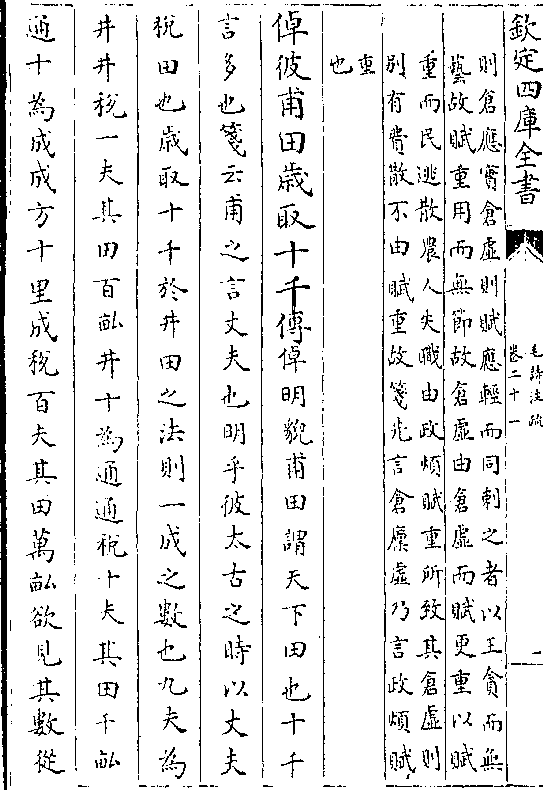 欽定四庫全書
毛詩注疏
卷二十一
則倉應實倉虛則賦應輕而同刺之者以王貪而無
藝故賦重用而無節故倉虛由倉虛而賦更重以賦
重而民逃散農人失職由政煩賦重所致其倉虛則
別有費散不由賦重故箋兆言倉廪虛乃言政煩賦
重
也
倬彼甫田歲取十千傳倬明貌甫田謂天下田也十千
言多也箋云甫之言丈夫也明乎彼太古之時以丈夫
稅田也歲取十千於井田之法則一成之數也九夫為
井井稅一夫其田百畝井十為通通稅十夫其田千畝
通十為成成方十里成稅百夫其田萬畝欲見其數從